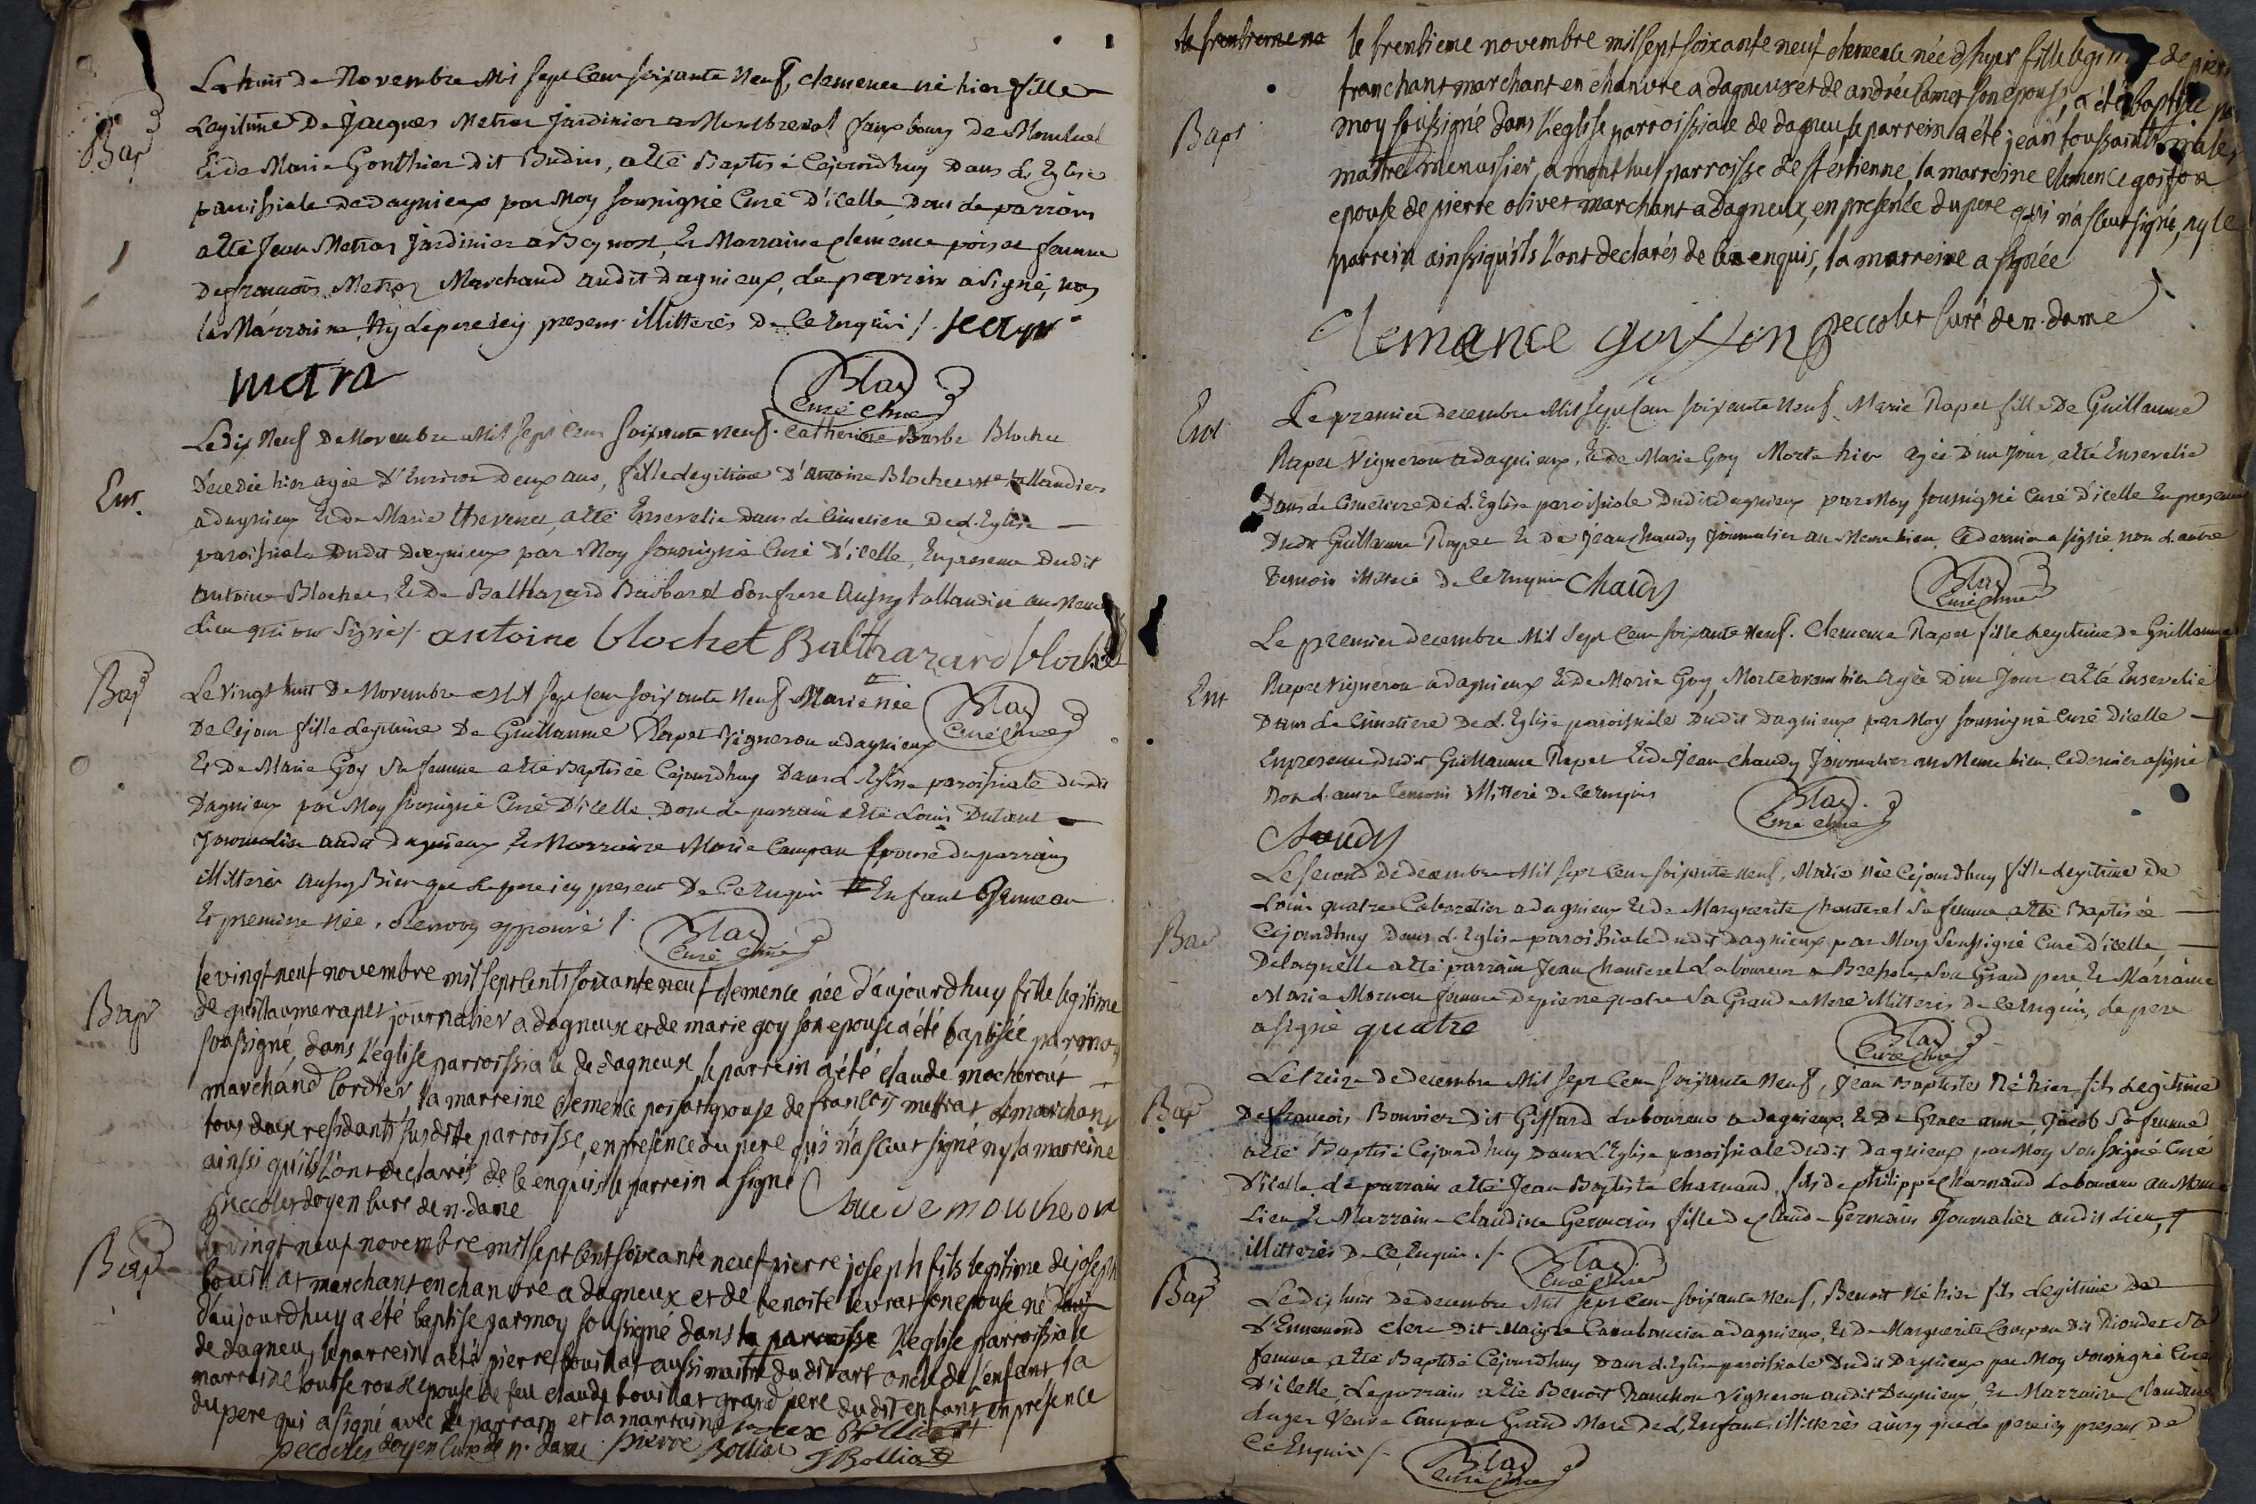 Le huit de Novembre Mil sept Cent soixante Neuf, clemence né hier fille
Legitime De Jacques Metras Jardinier a Montbrevol fauxbourg De Montluel
Et de Marie Gonthier Dit Budin, a été Baptisé Cejourdhuy Dans L'Eglise
paroissiale de dagnieux par Moy soussigné Curé D'icelle, Dont le parrain
a été Jean Metras Jardinier a Beynost, Et Marraine clemence poisat femme
De francois Metras Marchand audit dagnieux, Le parrain a signé, non
la Marraine, Ny le pere icy present illitterés De ce Enquis /. jean
metra
Blas
Curé
Bap
Le dix Neuf De Novembre Mil sept Cent soixante neuf. Catherine Barbe Blochet
Decedée hier agée D'Environ Deux ans, fille Legitime D'antoine Blochet taillandier
a dagnieux Et de Marie thevenet, a été Ensevelie Dans le Cimetiere De L'Eglise
paroissiale Dudit dagnieux par Moy soussigné Curé D'icelle, En presence Dudit
antoine Blochet Et De Balthazard son frere aussy taillandier au Meme
Lieu qui ont Signés /. antoine blochet Balthazard bloche
Ent
Bap
Le vingt huit De Novembre Mil sept Cent soixante Neuf Marie née
De Cejour fille Legitime De Guillaume Rapet Vigneron a dagnieux
Blas
Curé
Et De Marie Goy Sa femme a été Baptisée Cejourdhuy Dans L'Eglise paroissiale Dudit
Dagnieux par Moy soussigné Curé D'icelle. Dont Le parrain a été Louis
Journalier audit dagnieux, Et Marraine Marie Campan femme du parrain
illitterés aussy Bien que Le pere icy present De ce Enquis Enfant Jumeau
Et premiere Née. Renvoy approuvé /.
Blas
Curé
Bap
le vingt neuf novembre mil sept cents soixante neuf clemence née d'aujourdhuy fille legitime
de guillaume rapet journalier a dagneux et de marie goy son epouse a été baptisée par moy
soussigné, dans l'eglise parroissiale de dagneux, le parrein a été claude
marchand cordier, la marreine clemence poisat epouse de françois mettras marchant
tous deux residants susditte parroisse, en presence du pere qui n'a scut signé ny la marreine
ainsi quils l'ont declarés de ce enquis le parrein a signé
peccolet doyen curé de n. dame
Bap
le vingt neuf novembre mil sept cent soixante neuf pierre joseph fils legitime de joseph
bouillat marchant en chanvre a dagneux et de benoite levrat son epouse né
d'aujourdhuy a été baptise par moy soussigné dans la parroisse l'eglise parroissiale
de dagneu, le parrein a été pierre bouillat aussi maitre du dit art oncle de l'enfant la
marreine epouse de feu claude bouillat grand pere du dit enfant en presence
du pere qui a signé avec le parrain et la marraine
doyen curé de n. dame pierre Bollia J Bollia
le trentieme novembre mil sept soixante neuf clemence née d'hyer fille legitime de pierre
tranchant marchant en chanvre a dagneux et de andrée son epouse, a été baptisée par
moy soussigné dans l'eglise parroissiale de dagneu le parrein a été jean toussaint
maitre menussier, a montluel parroisse de st estienne, la marreine clemence goifon
epouse de pierre olivet marchant a dagneux, en presence du pere qui n'a scut signé, ny le
parrein ainssi quils l'ont declarés de ce enquis, la marreine a signée
Clemance goiffon peccolet curé de n. dame
Bapt
Ent
Le premier decembre Mil Sept Cent soixante Neuf Marie Rapet fille De Guillaume
Rapet Vigneron a dagnieux, Et de Marie Goy Morte hier agée D'un Jour a été Ensevelie
Dans Le Cimetiere De L'Eglise paroissiale Dudit dagnieux par Moy soussigné Curé D'icelle En presence
Dudit Guillaume Rapet Et De Jean Chaudy Journalier au Meme Lieu, Le dernier a signé non L'autre
Temoin illitteré De ce Enquis Chaudy
Blas
Curé
Le premier decembre Mil Sept Cent soixante Neuf. Clemence Rapet fille Legitime de Guillaume
Rapet Vigneron a dagnieux Et de Marie Goy, Morte avant hier Agée D'un Jour, a été Ensevelie
Dans Le Cimetiere De L'Eglise paroissiale Dudit Dagnieux par Moy soussigné Curé D'icelle
En presence dudit Guillaume Rapet Et de Jean Chaudy Journalier au Meme Lieu. Le dernier a signé
Non L'autre temoin illitteré De ce Enquis
Ent
Blas
Curé
Chaudy
Le second de decembre Mil Sept Cent soixante neuf, Marie Née Cejourdhuy fille Legitime De
Louis quatre Cabaretier a dagnieux Et de Marguerite Chanterel Sa femme a été Baptisée
Cejourdhuy Dans L'Eglise paroissiale Dudit dagnieux par Moy Soussigné Curé D'icelle
De laquelle a été parrain Jean Chanterel Laboureur a Bressole, Son Grand pere Et Marraine
Marie femme De pierre quatre Sa Grande Mere illitteris De ce Enquis, Le pere
a signé quatre
Bap
Blas
Curé
Le treize de decembre Mil Sept Cent soixante Neuf, Jean Baptiste Né hier fils Legitime
De francois Bouvier Dit Giffard Laboureur a dagnieux, Et De Grace anne Jacob Sa femme
a été Baptisé Cejourdhuy Dans L'Eglise paroissiale dudit Dagnieux par Moy Soussigné Curé
D'icelle. Le parrain a été Jean Baptiste Charnaud, fils de philippe Charnaud Laboureur au Meme
Lieu Et Marraine Claudine Germain fille De Claude Germain Journalier audit Lieu,
illitterés De Ce Enquis. /.
Bap
Blas
Curé
Bap
Le dix huit De decembre Mil Sept Cent soixante Neuf, Benoit Né hier fils Legitime De
D'Ennemond Clerc Dit Maigre a dagnieux, Et De Marguerite Campan Dit Sa
femme a été Baptisé Cejourdhuy Dans L'Eglise paroissiale Dudit Dagnieux par Moy soussigné Curé
D'icelle, Le parrain a été Benoit Vigneron audit Dagnieux, Et Marraine Claudine
auger Veuve Campan Grand Mere De L'Enfant illitterés ainsy que Le pere icy present De
Ce Enquis /.
Blas
Curé